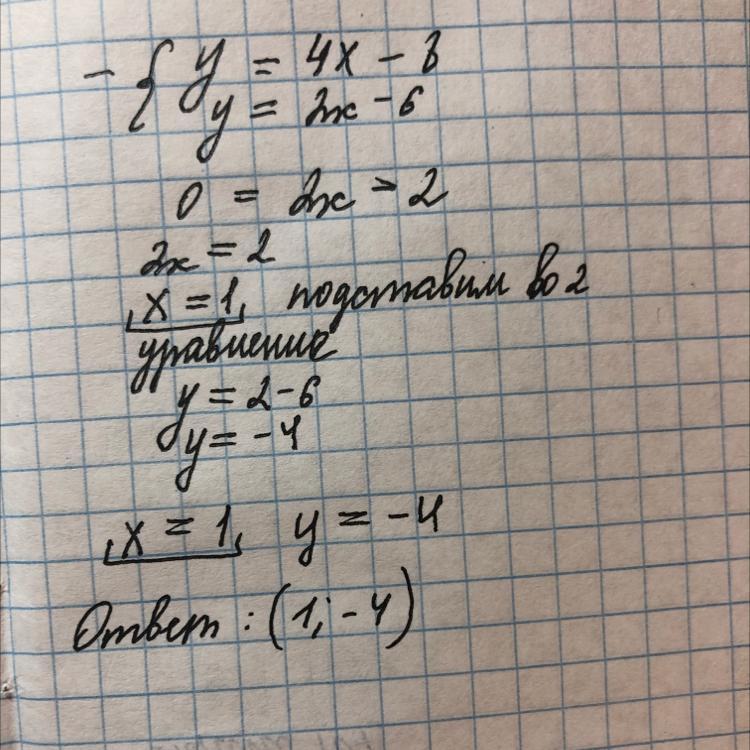 - { y = 4x - 8
y = 2x - 6
0 = 2x - 2
2x = 2
x = 1, подставим во 2
уравнение
y = 2 - 6
y = -4
x = 1, y = -4
Ответ : (1; -4)